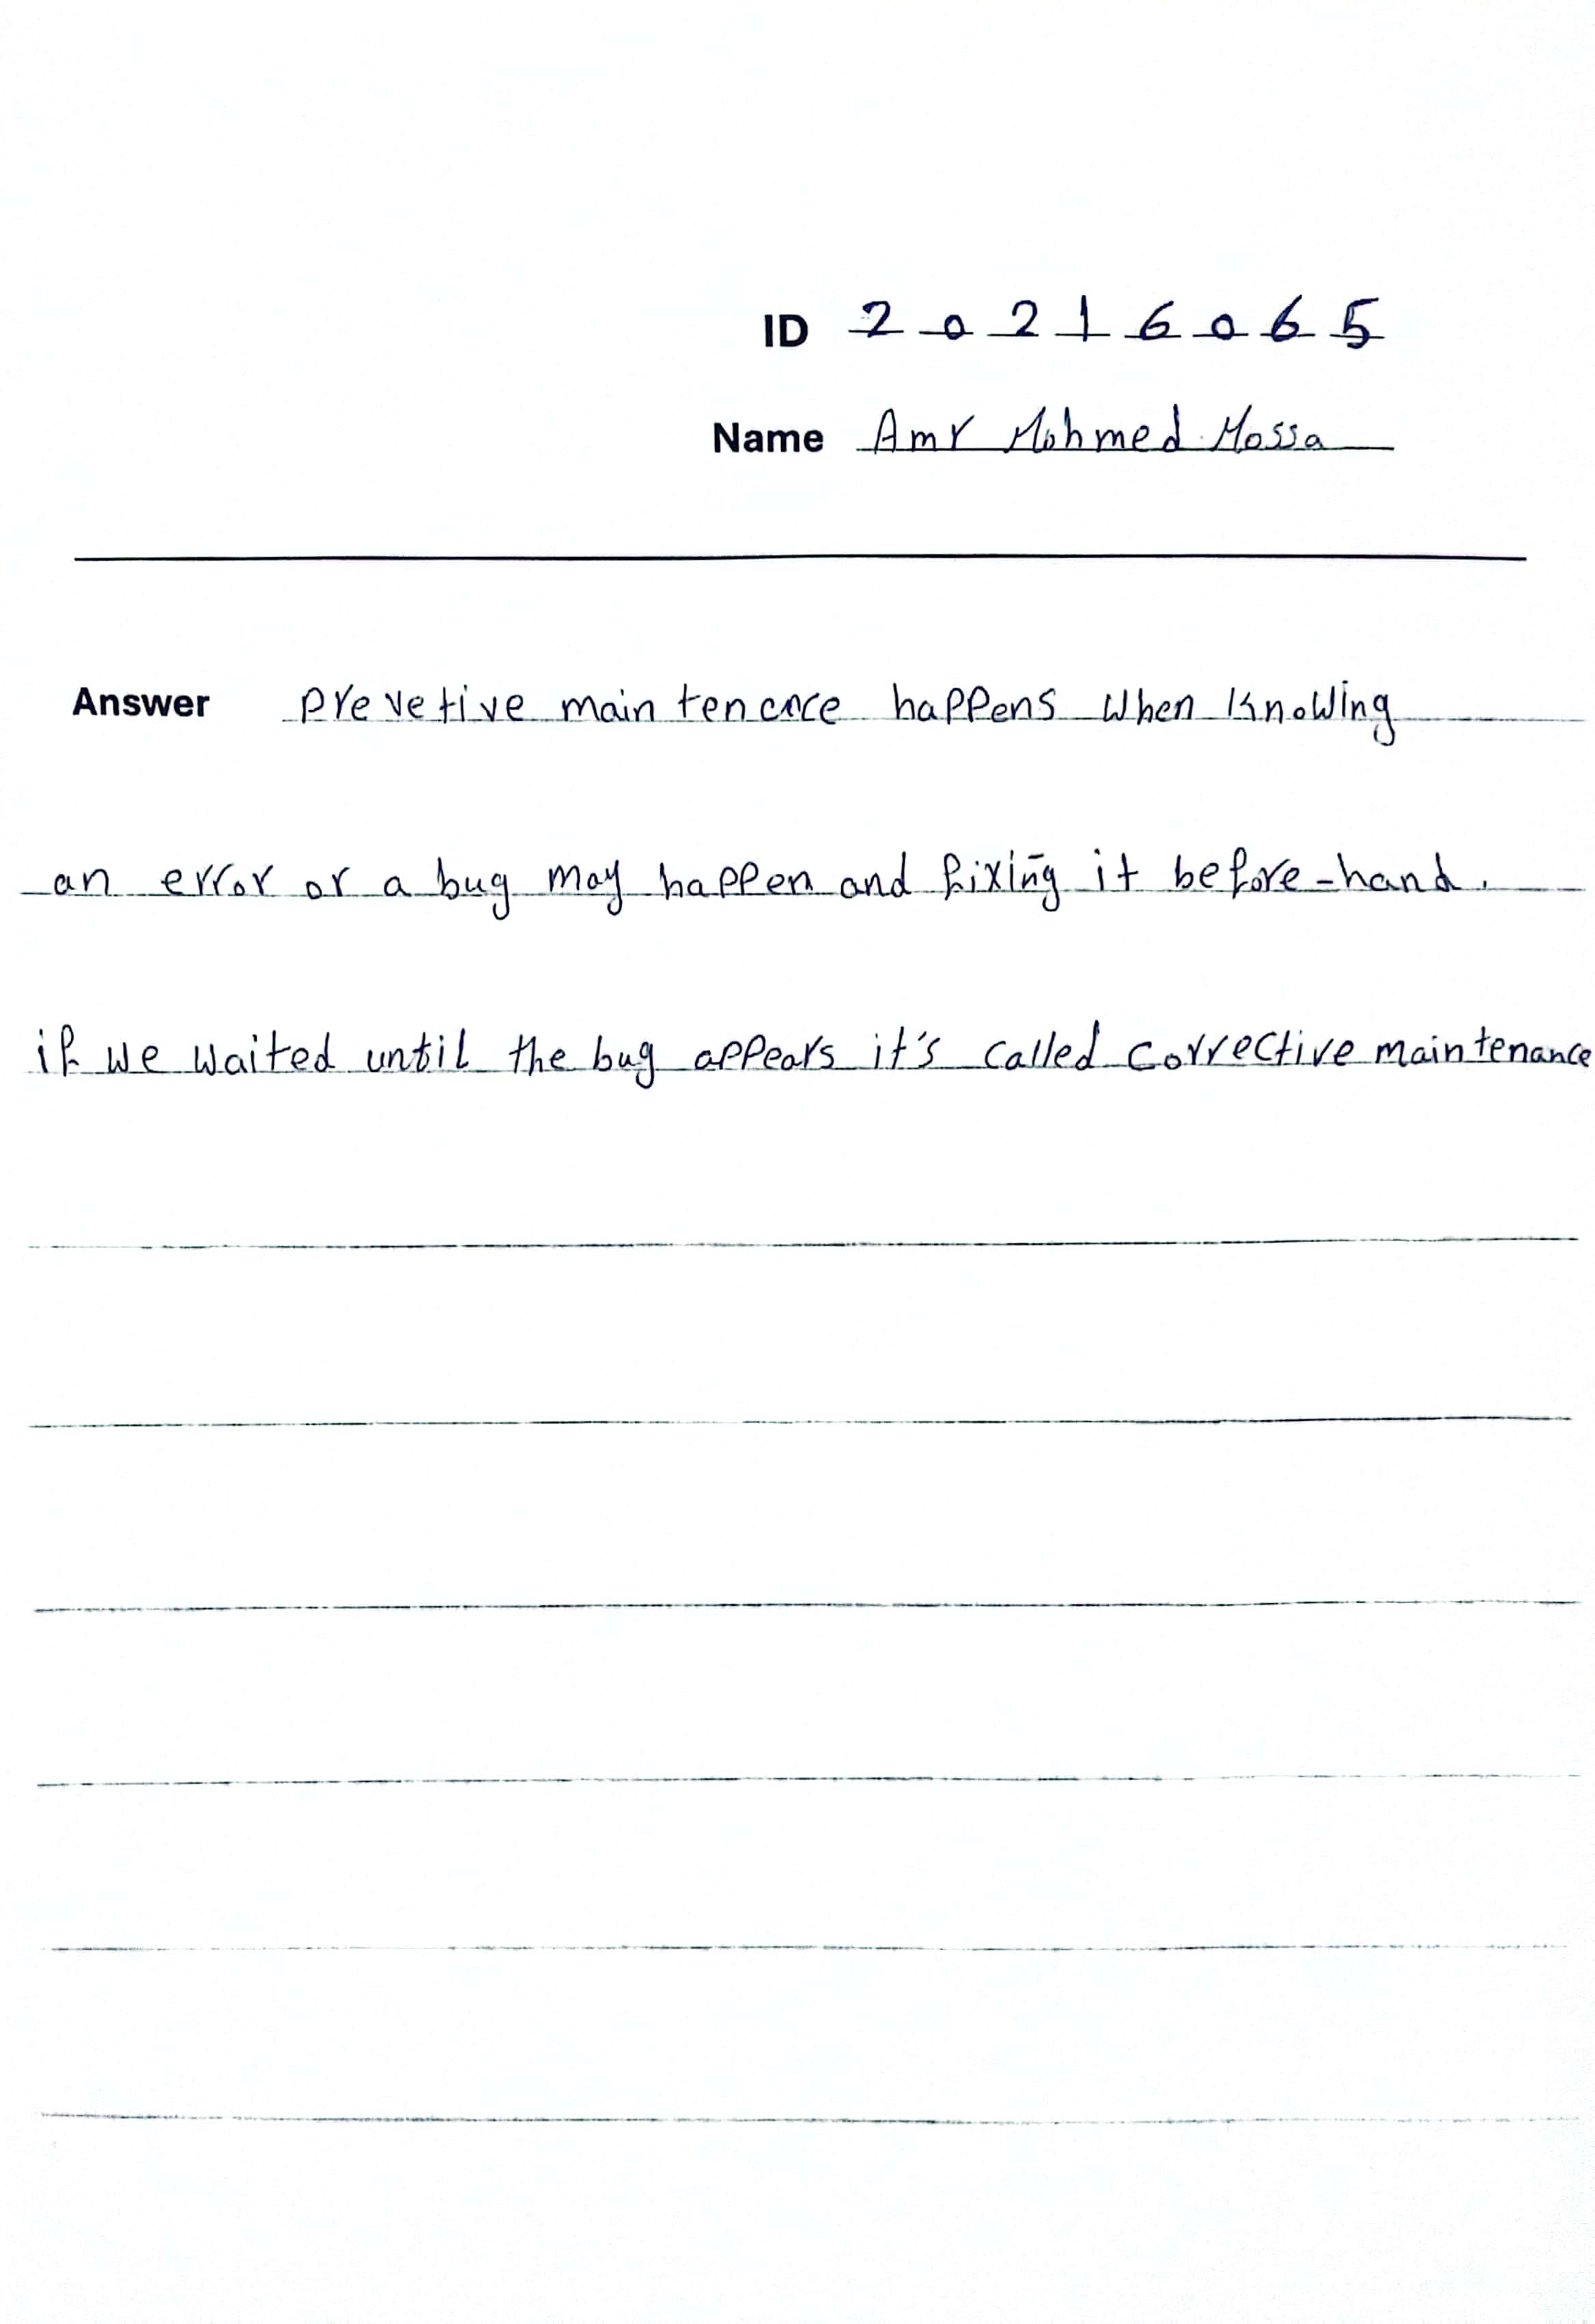 ID 20216065
Name Amr Mohmed Mossa
Answer prevetive maintencnce happens when knowing
an error or a bug may happen and fixing it before-hand.
if we waited until the bug appears it's called corrective maintenance